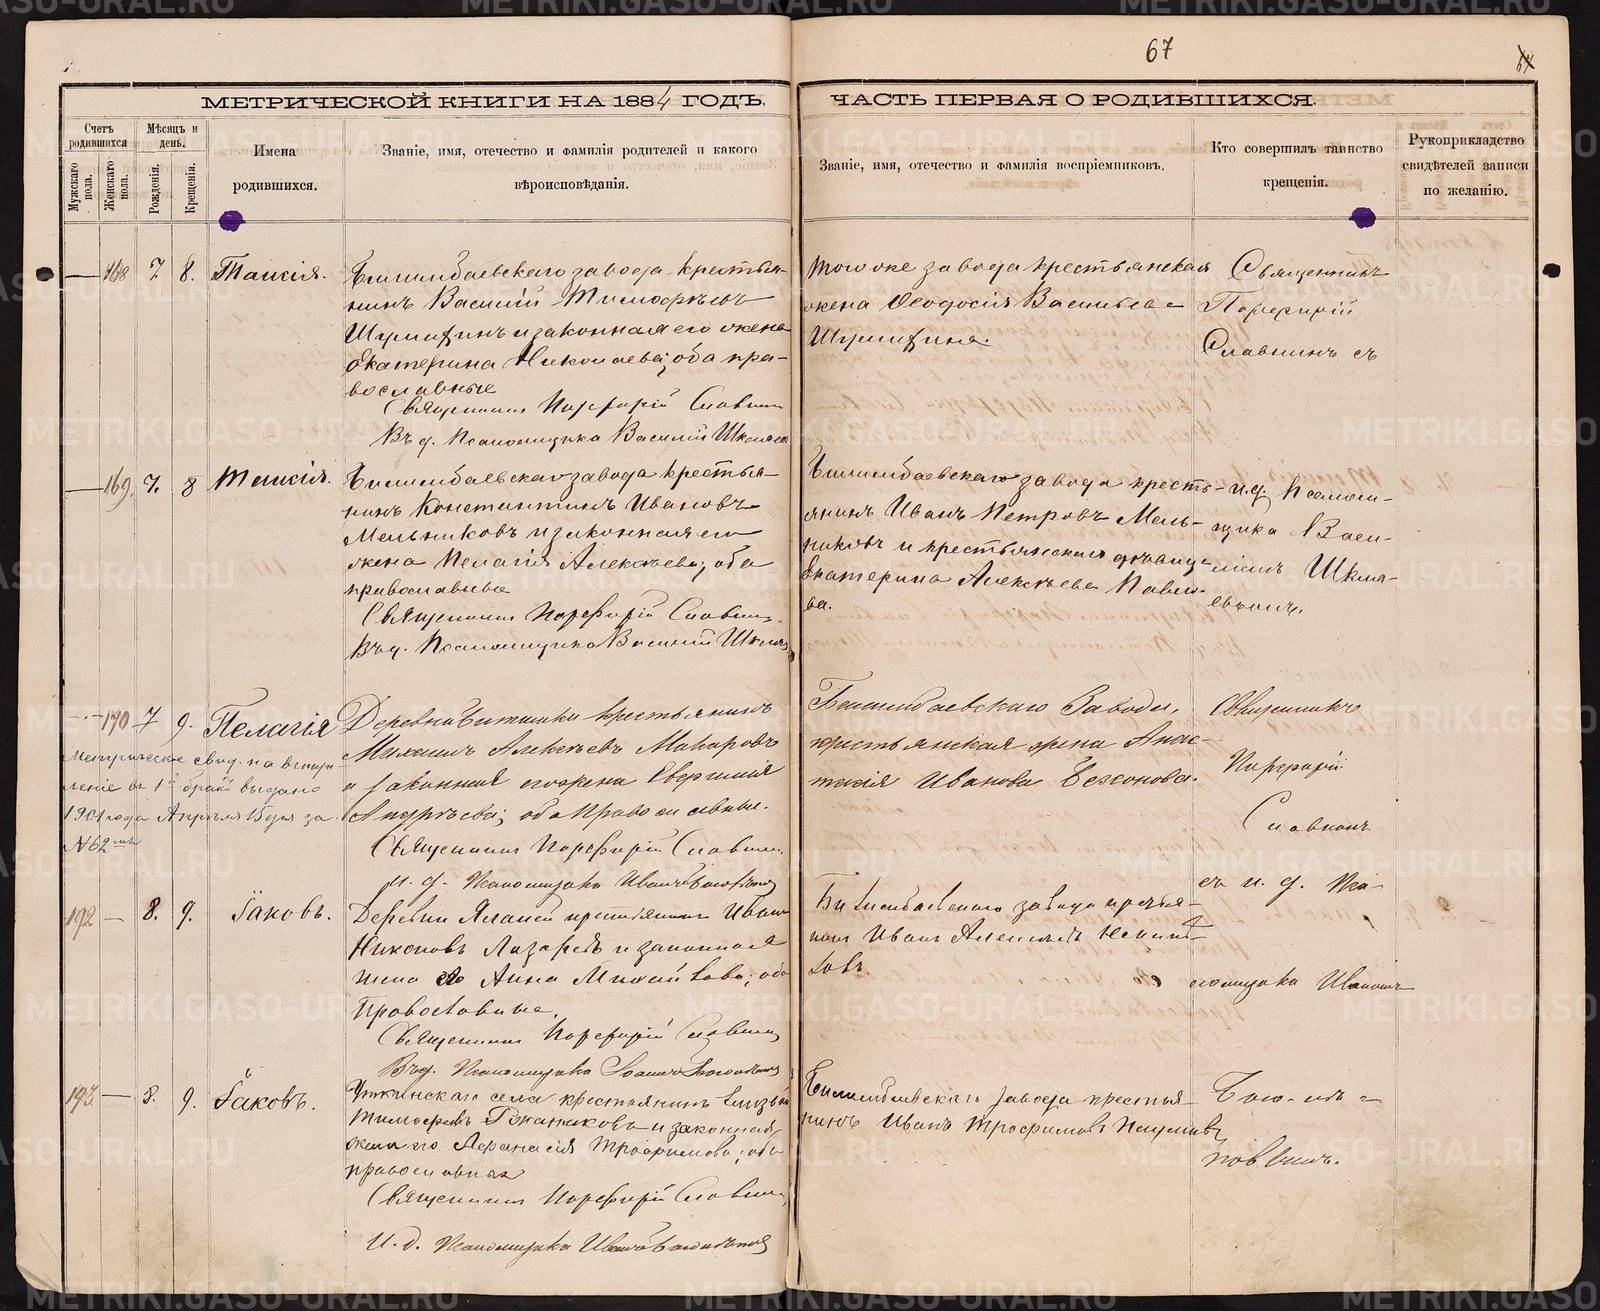 67
МЕТРИЧЕСКОЙ КНИГИ НА 1884 ГОДЪ,
ЧАСТЬ ПЕРВАЯ О РОДИВШИХСЯ.
Счетъ родившихся
Мужскаго пола.
Женскаго пола.
Мѣсяцъ и день.
Рожденія.
Крещенія.
Имена родившихся.
Званіе, имя, отечество и фамилія родителей и какого вѣроисповѣданія.
Званіе, имя, отечество и фамилія воспріемниковъ.
Кто совершилъ таинство крещенія.
Рукоприкладство свидѣтелей записи по желанію.
168 7. 8. Таисія.
Билимбаевскаго завода крестья-
нинъ Василій Тимофѣевъ
и законная его жена
Екатерина Николаева; оба пра-
вославные
Священникъ Порфирій Славнинъ
В. д. Псаломщика Василій
Того же завода крестьянская
жена Ѳеодосія Васильева
Священникъ
Порфирій
Славнинъ съ
169. 7. 8 Таисія.
Билимбаевскаго завода крестья-
нинъ Константинъ Ивановъ
Мельниковъ и законная его
жена Пелагія Алексѣева; оба
православные
Священникъ Порфирій Славнинъ
В. д. Псаломщика Василій
Билимбаевскаго завода кресть-
янинъ Иванъ Петровъ Мель-
никовъ и крестьянская дѣвица
Екатерина Алексѣева
ва.
и. д. Псалом-
щика Васи-
ліемъ
170 7 9. Пелагія
Метрическое свид. на вступ-
леніе въ 1й бракъ выдано
1901 года Апрѣля 15 дня за
№ 62
Деревни крестьянинъ
Михаилъ Алексѣевъ Макаровъ
и законная его жена Евгенія
Андреева; оба православные.
Священникъ Порфирій Славнинъ
И. д. Псаломщика Иванъ
Билимбаевскаго Завода,
крестьянская жена Анас-
тасія Иванова
Священникъ
Порфирій
Славнинъ
съ и. д. Пса-
192 8. 9. Іаковъ.
Деревни крестьянинъ Иванъ
Никоновъ Лазаревъ и законная
жена его Анна Михайлова; оба
Православные.
Священникъ Порфирій Славнинъ
В. д. Псаломщика
Билимбаевскаго завода крестья-
нинъ Иванъ Алексѣевъ
ломщика Иваномъ
193. 8. 9. Іаковъ.
Уткинскаго села крестьянинъ
Тимофѣевъ и законная
жена его Афанасія Трофимова; оба
православные
Священникъ Порфирій Славнинъ
И. д. Псаломщика Иванъ
Билимбаевскаго завода крестья-
нинъ Иванъ Трофимовъ
METRIKI.GASO-URAL.RU